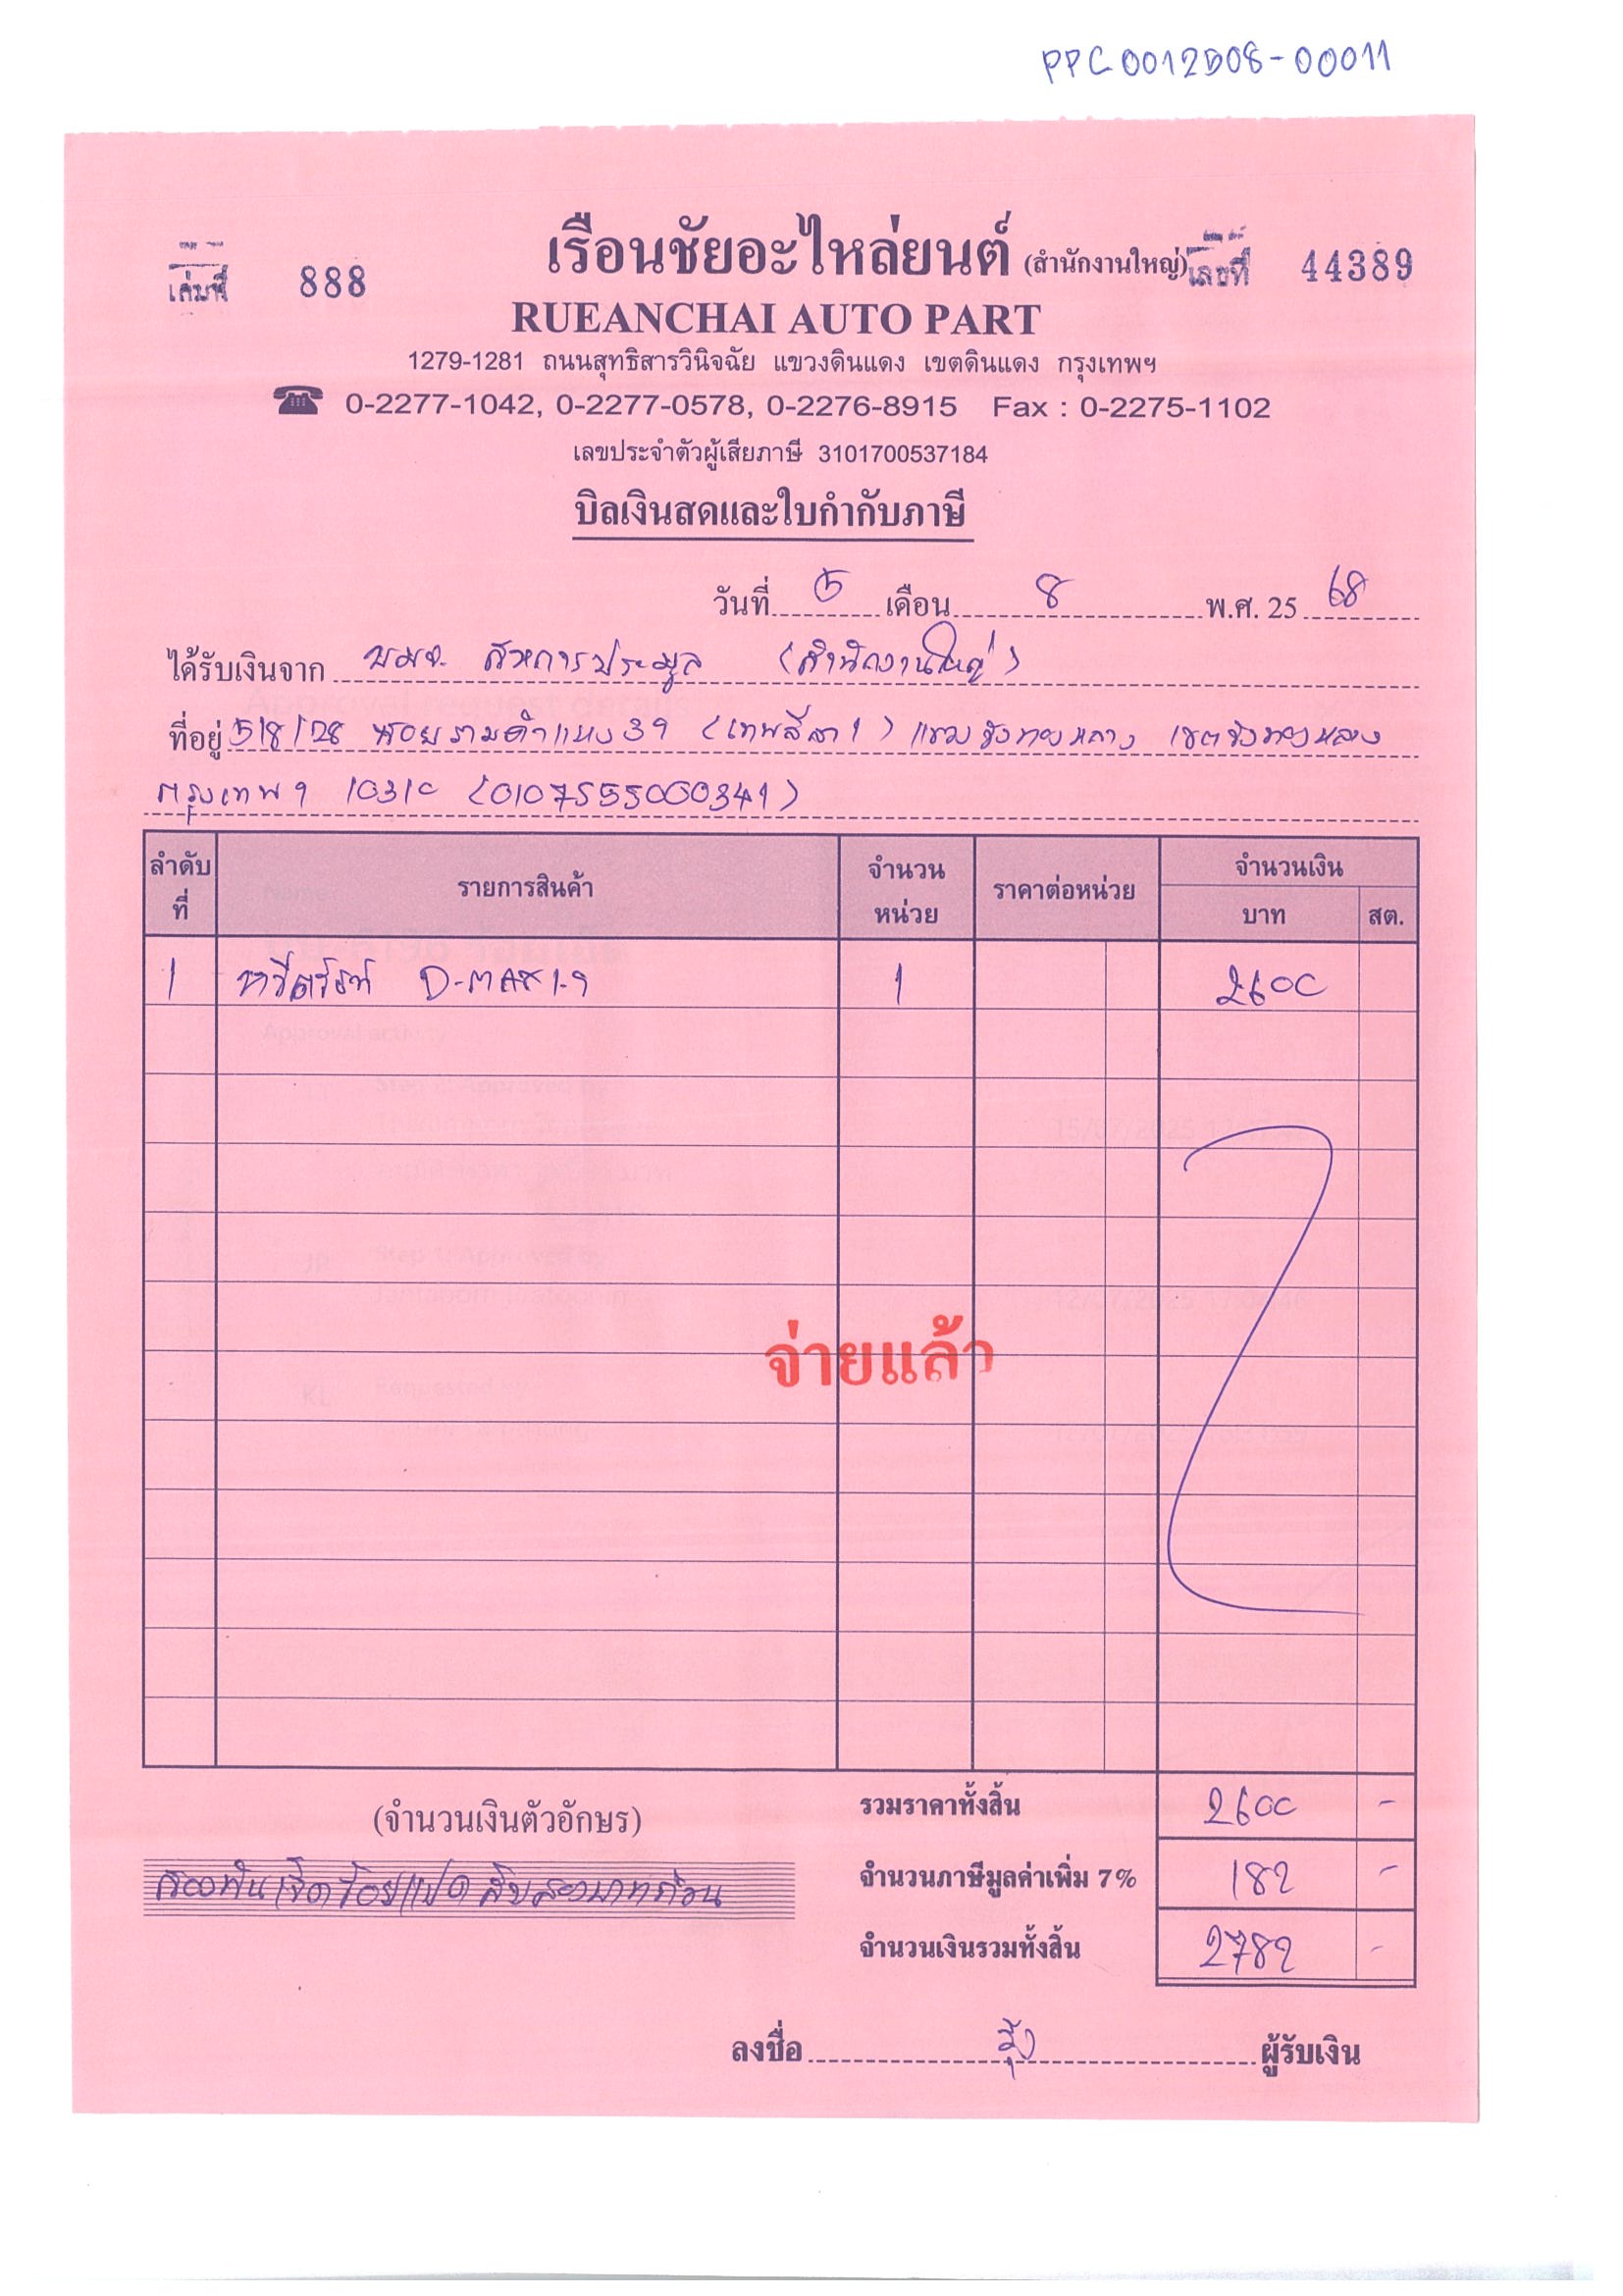 PPC0012508-00011
เล่มที่ 888
เรือนชัยอะไหล่ยนต์ (สำนักงานใหญ่) เลขที่ 44389
RUEANCHAI AUTO PART
1279-1281 ถนนสุทธิสารวินิจฉัย แขวงดินแดง เขตดินแดง กรุงเทพฯ
0-2277-1042, 0-2277-0578, 0-2276-8915 Fax : 0-2275-1102
เลขประจำตัวผู้เสียภาษี 3101700537184
บิลเงินสดและใบกำกับภาษี
วันที่ 5 เดือน 8 พ.ศ. 25 68
ได้รับเงินจาก บมจ. สหการประมูล (สำนักงานใหญ่)
ที่อยู่ 518/28 ซอยรามคำแหง 39 (เทพลีลา 1) แขวงวังทองหลาง เขตวังทองหลาง
กรุงเทพฯ 10310 (0107555000341)
ลำดับที่ รายการสินค้า จำนวนหน่วย ราคาต่อหน่วย จำนวนเงิน
บาท สต.
1 D-MAX 1.9 1 2600
จ่ายแล้ว
รวมราคาทั้งสิ้น 2600 -
(จำนวนเงินตัวอักษร)
จำนวนภาษีมูลค่าเพิ่ม 7% 182 -
สองพันเจ็ดร้อยแปดสิบสองบาทถ้วน
จำนวนเงินรวมทั้งสิ้น 2782 -
ลงชื่อ ผู้รับเงิน